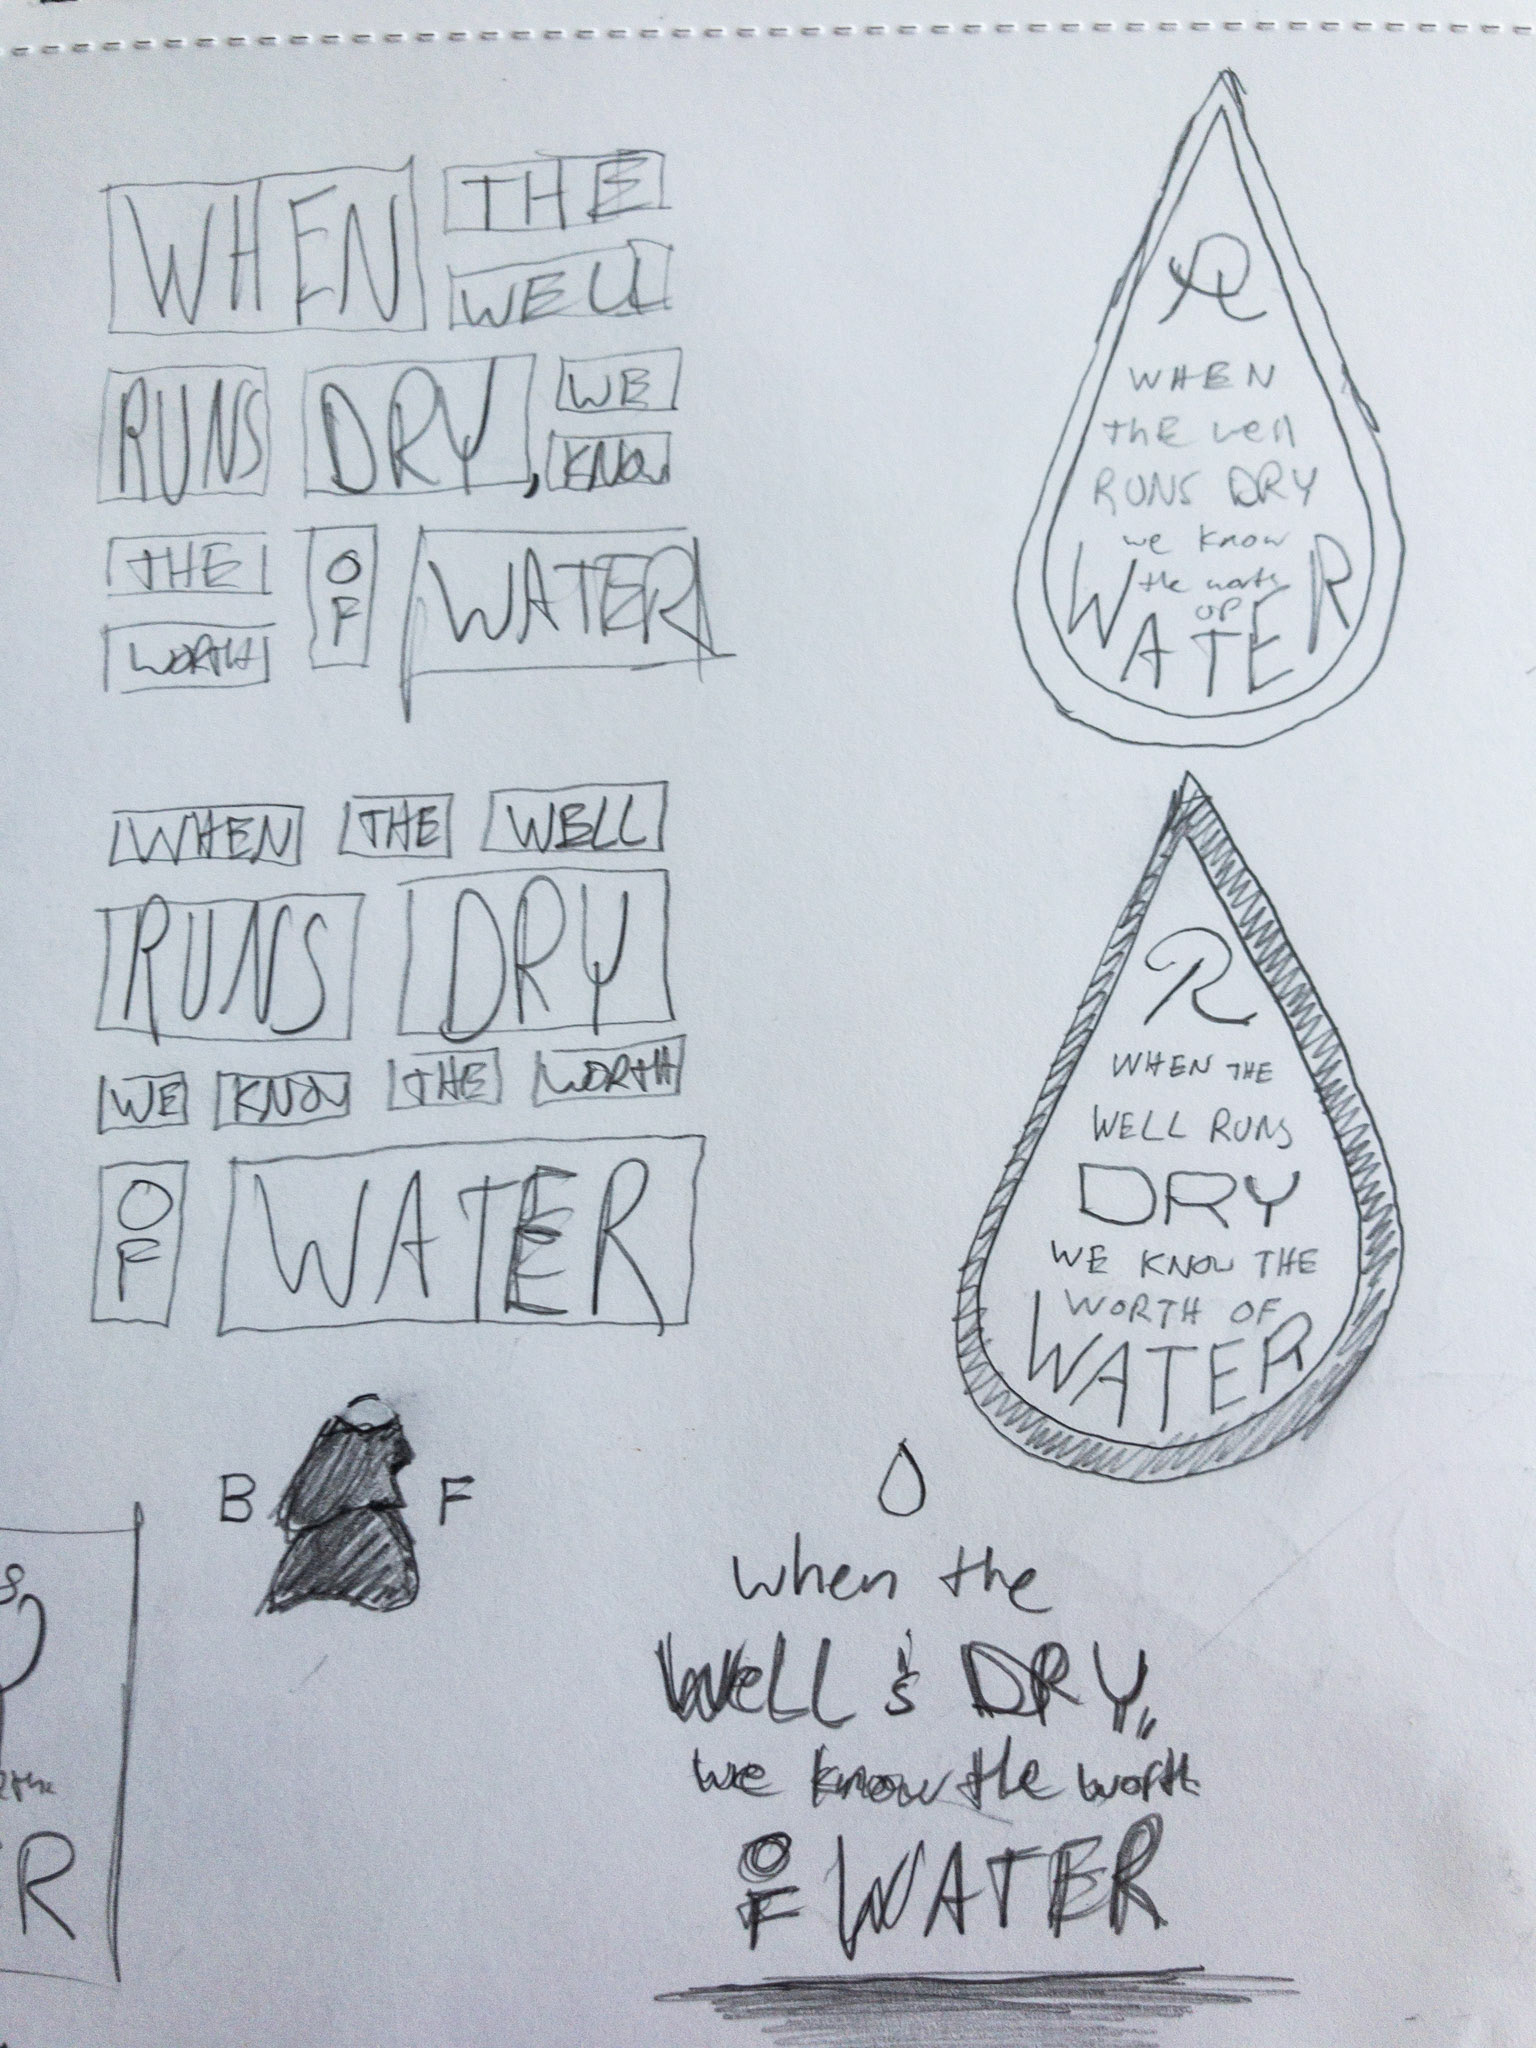 WHEN THE
WELL
RUNS DRY, WE
KNOW
THE OF WATER
WORTH
WHEN THE WELL
RUNS DRY
WE KNOW THE WORTH
OF WATER
B F
R
WHEN
thE well
RUNS DRY
we know
the worth
OF
WATER
R
WHEN THE
WELL RUNS
DRY
WE KNOW THE
WORTH OF
WATER
when the
WeLL 's DRY,,
we know the worth
OF WATER
R